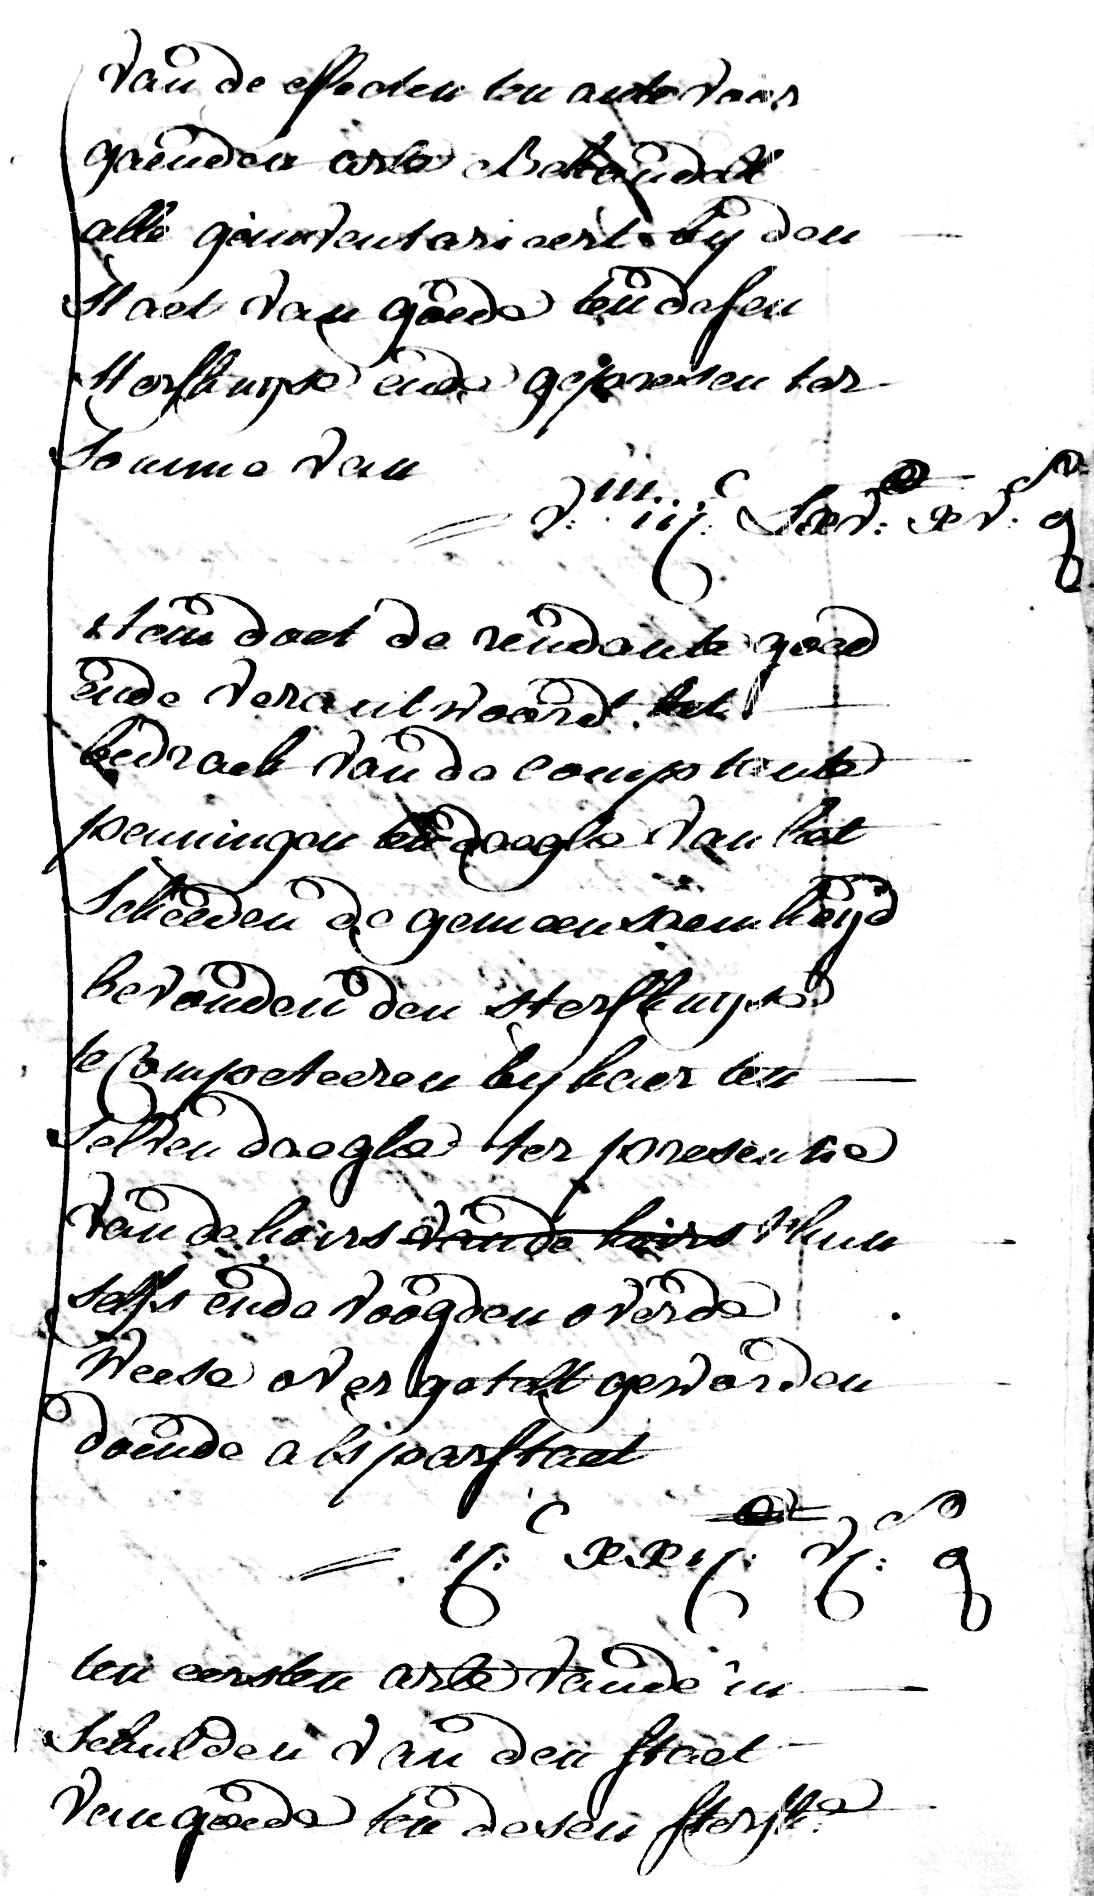 van de effecten ten ante voor
gaenden arle Behandelt
alle geinventarieert by den
staet van goede ten desen
sterfhuyse ende gepresen ter
somme van
v: m iij: c Lxv: xv: g
item doet de rendante goed
ende verantwoord het
bedrach van de comptante
penningen ten daeghe van het
scheeden de gemeensaemheyd
bevonden den sterfhuyse
te Competeeren by haer ten
selven daeghe ter presentie
van de hoirs van de hoirs hun
selfs ende vooghden over de
weese over getelt geworden
doende als par staet
ij: c xxij: vj: g
ten eersten arle van de in
schulden van den staet
van goede ten desen sterfh:e